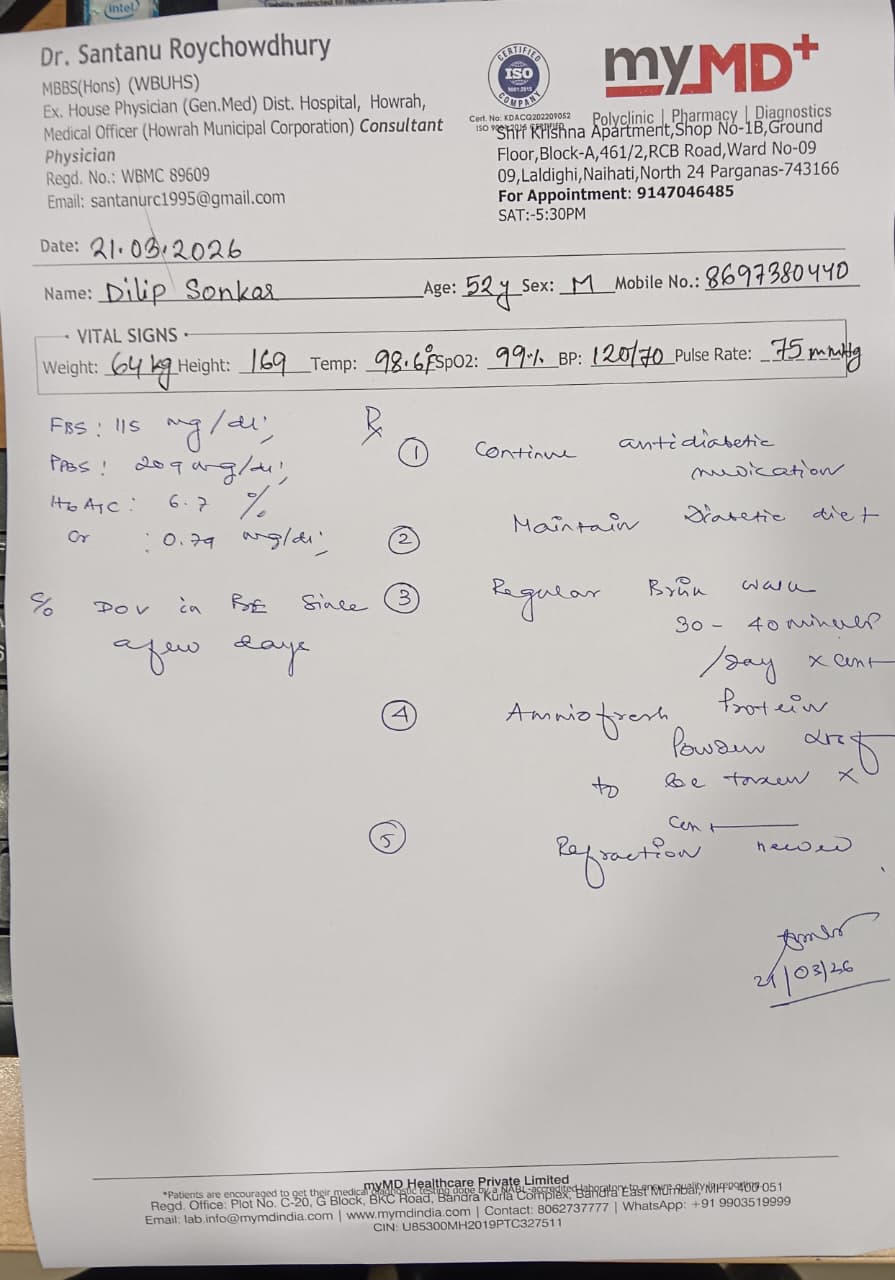 intel
Dr. Santanu Roychowdhury
MBBS(Hons) (WBUHS)
Ex. House Physician (Gen.Med) Dist. Hospital, Howrah,
Medical Officer (Howrah Municipal Corporation) Consultant
Physician
Regd. No.: WBMC 89609
Email: santanurc1995@gmail.com
CERTIFIED
ISO
9001:2015
COMPANY
Cert. No: KDACQ202209052
ISO 9001:2015 CERTIFIED
myMD+
Polyclinic | Pharmacy | Diagnostics
Shri Krishna Apartment,Shop No-1B,Ground
Floor,Block-A,461/2,RCB Road,Ward No-09
09,Laldighi,Naihati,North 24 Parganas-743166
For Appointment: 9147046485
SAT:-5:30PM
Date: 21.03.2026
Name: Dilip Sonkar Age: 52y Sex: M Mobile No.: 8697380440
VITAL SIGNS
Weight: 64 kg Height: 169 Temp: 98.6°F SpO2: 99% BP: 120/70 Pulse Rate: 75 mmHg
FBS: 115 mg/dl;
PPBS: 209 mg/dl;
HbA1C: 6.7 %
Cr : 0.79 mg/dl;
C/o DOV in BE since
a few days
Rx
① Continue antidiabetic
medication
② Maintain Diabetic diet
③ Regular Brisk walk
30 - 40 minutes
/day x cont
④ Amniofresh Protein
Powder
to be taken x
cont
⑤ Refraction needed
21/03/26
myMD Healthcare Private Limited
*Patients are encouraged to get their medical diagnostic testing done by a NABL-accredited laboratory to ensure quality in reporting
Regd. Office: Plot No. C-20, G Block, BKC Road, Bandra Kurla Complex, Bandra East Mumbai, MH - 400 051
Email: lab.info@mymdindia.com | www.mymdindia.com | Contact: 8062737777 | WhatsApp: +91 9903519999
CIN: U85300MH2019PTC327511